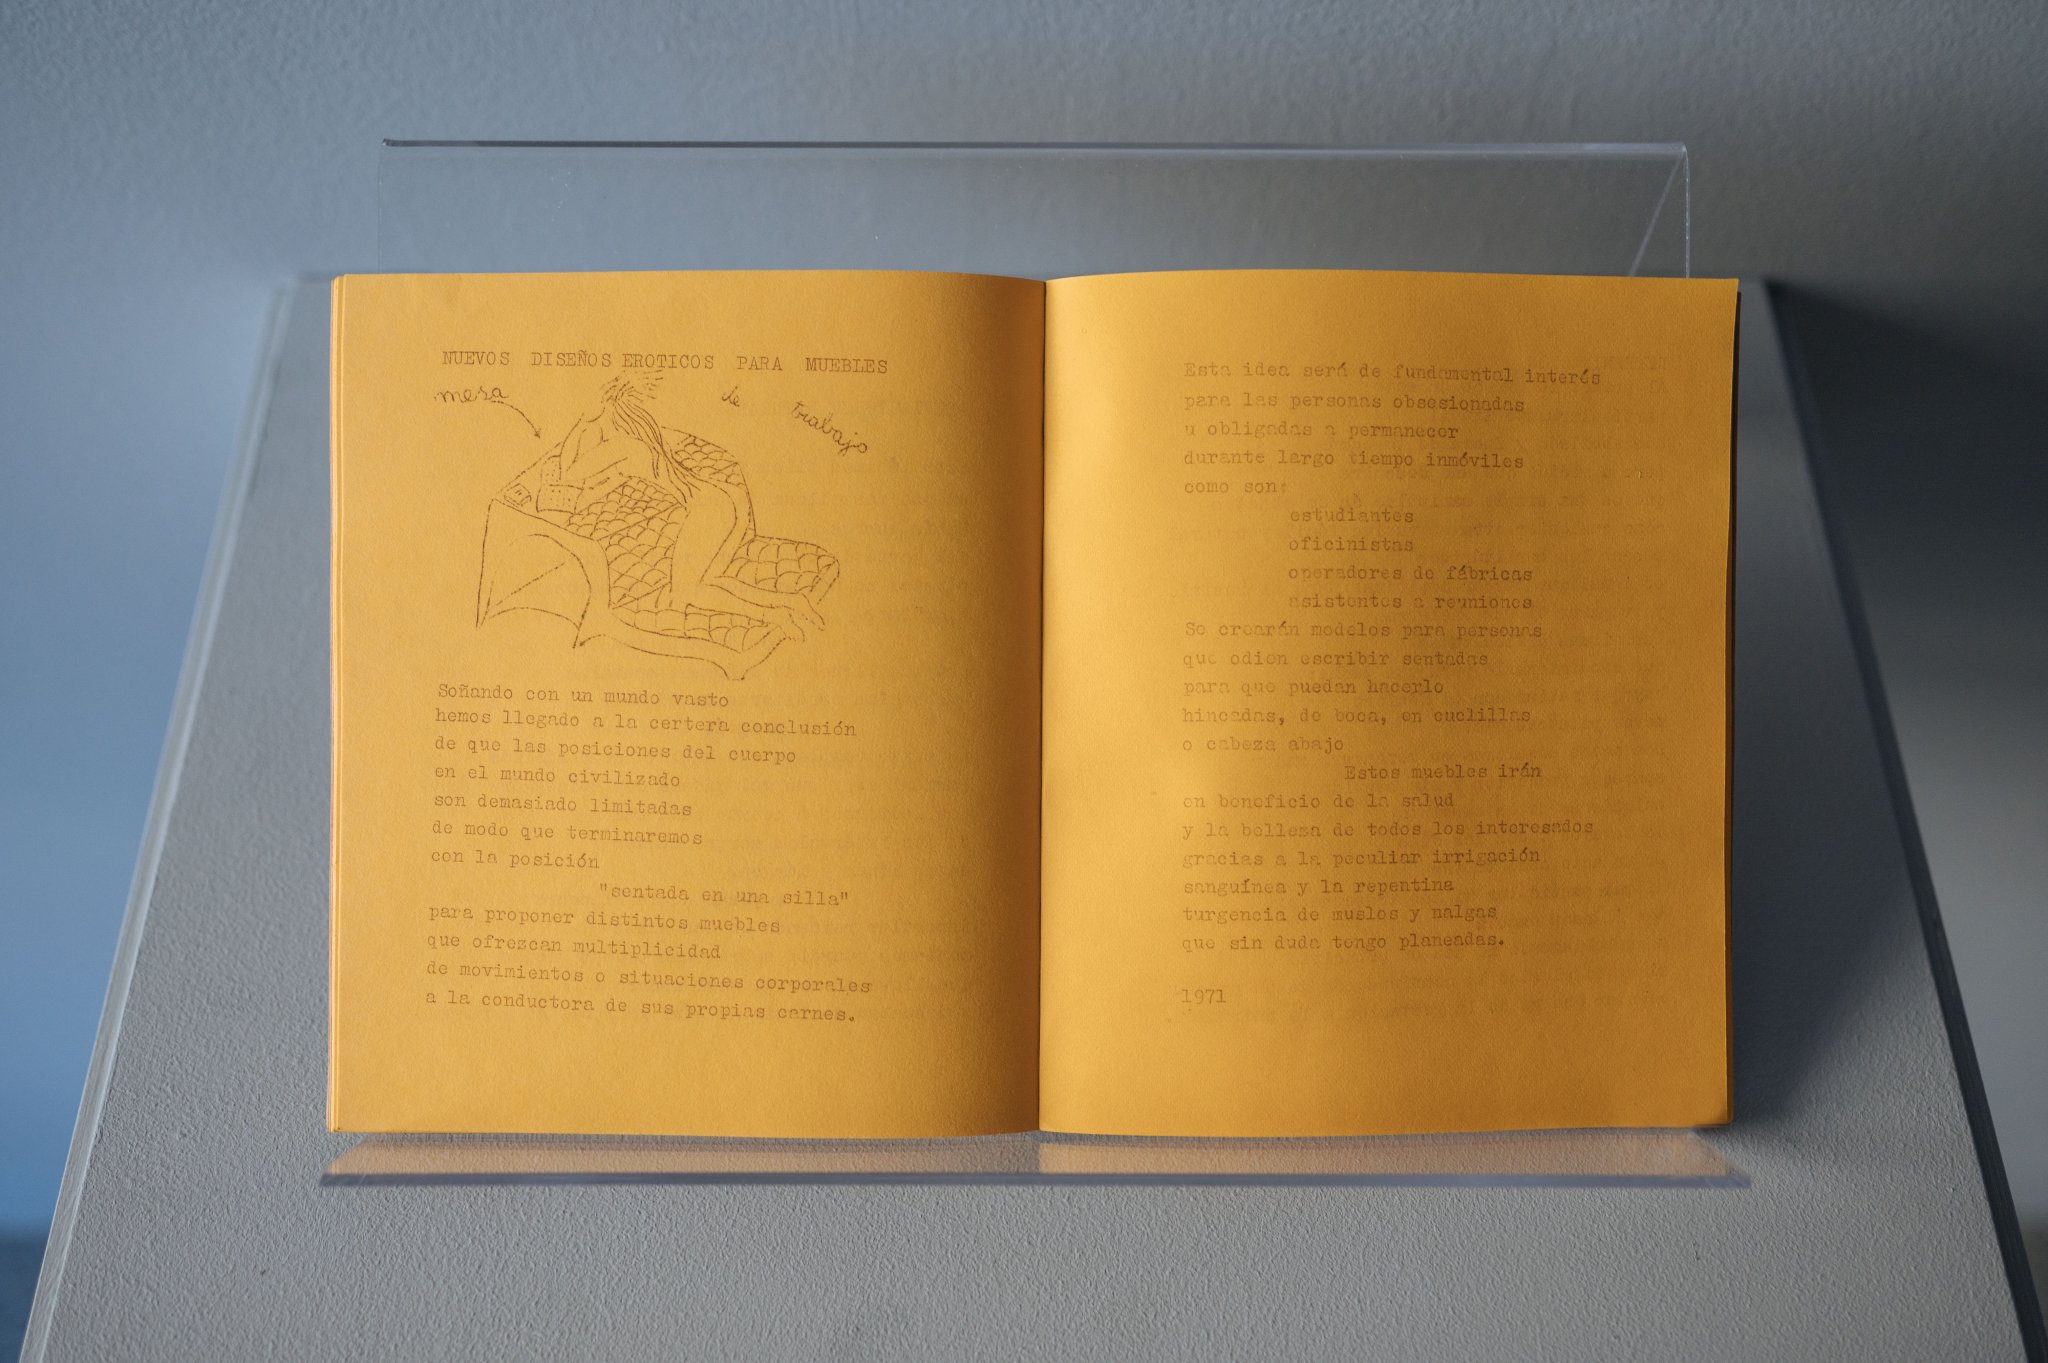 NUEVOS DISEÑOS EROTICOS PARA MUEBLES
mesa de trabajo
Soñando con un mundo vasto
hemos llegado a la certera conclusión
de que las posiciones del cuerpo
en el mundo civilizado
son demasiado limitadas
de modo que terminaremos
con la posición
"sentada en una silla"
para proponer distintos muebles
que ofrezcan multiplicidad
de movimientos o situaciones corporales
a la conductora de sus propias carnes.
Esta idea será de fundamental interés
para las personas obsesionadas
u obligadas a permanecer
durante largo tiempo inmóviles
como son:
estudiantes
oficinistas
operadores de fábricas
asistentes a reuniones
Se crearán modelos para personas
que odien escribir sentadas
para que puedan hacerlo
hincadas, de boca, en cuclillas
o cabeza abajo
Estos muebles irán
en beneficio de la salud
y la belleza de todos los interesados
gracias a la peculiar irrigación
sanguínea y la repentina
turgencia de muslos y nalgas
que sin duda tengo planeadas.
1971